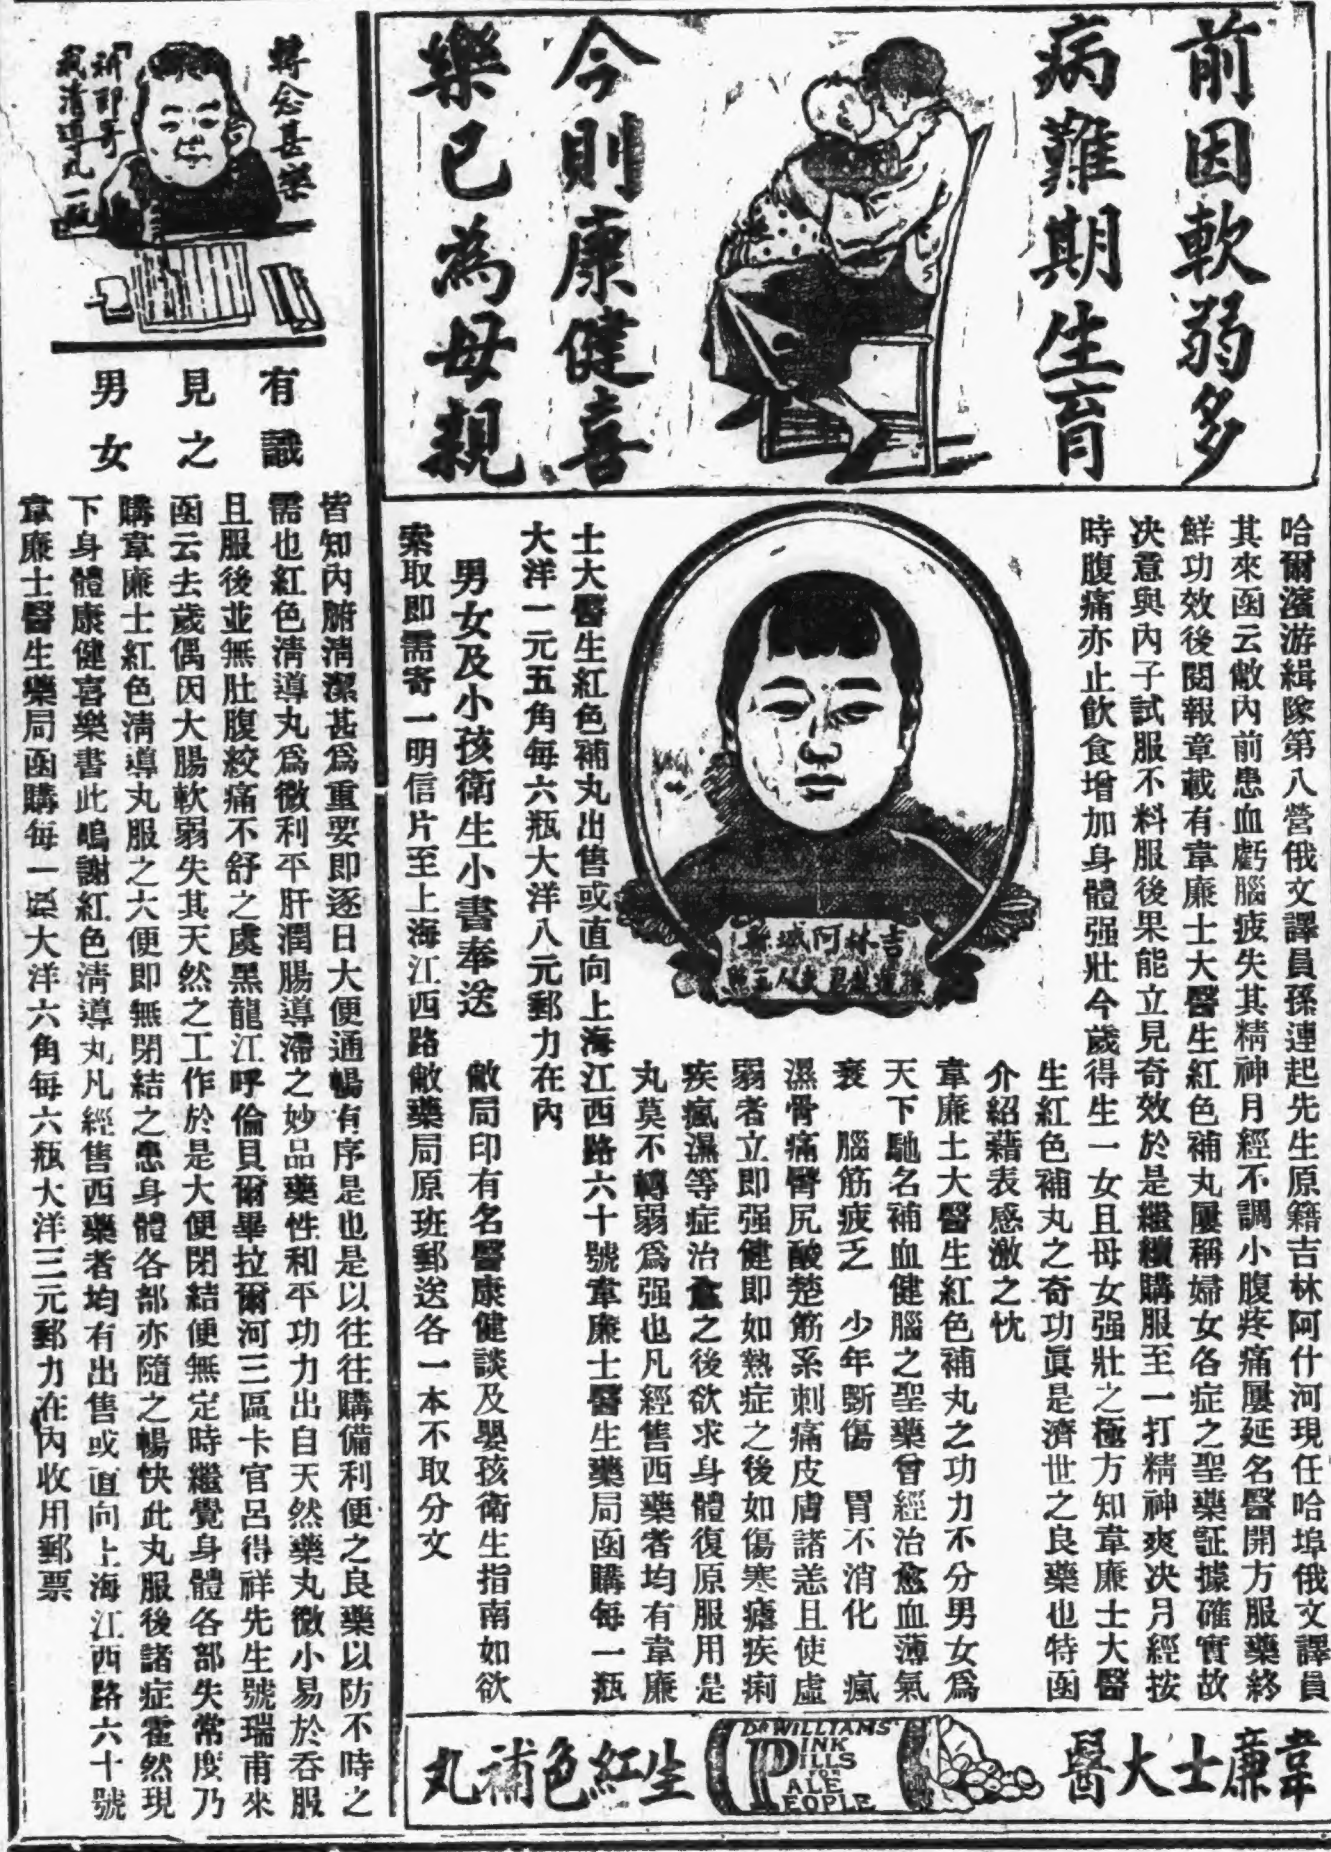 前因軟弱多
病難期生育
今則康健喜
樂已為母親
哈爾濱游緝隊第八營俄文譯員孫連起先生原籍吉林阿什河現任哈埠俄文譯員
其來函云敝內前患血虧腦疲失其精神月經不調小腹疼痛屢延名醫開方服藥終
鮮功效後閱報章載有韋廉士大醫生紅色補丸屢稱婦女各症之聖藥証據確實故
决意與內子試服不料服後果能立見奇效於是繼續購服至一打精神爽决月經按
時腹痛亦止飲食增加身體强壯今歲得生一女且母女强壯之極方知韋廉士大醫
生紅色補丸之奇功眞是濟世之良藥也特函
介紹藉表感激之忱
韋廉士大醫生紅色補丸之功力不分男女爲
天下馳名補血健腦之聖藥曾經治愈血薄氣
衰 腦筋疲乏 少年斲傷 胃不消化 瘋
濕骨痛臀尻酸楚筋系刺痛皮膚諸恙且使虛
弱者立即强健即如熱症之後如傷寒瘧疾痢
疾瘋濕等症治愈之後欲求身體復原服用是
丸莫不轉弱爲强也凡經售西藥者均有韋廉
士大醫生紅色補丸出售或直向上海江西路六十號韋廉士醫生藥局函購每一瓶
大洋一元五角每六瓶大洋八元郵力在內
男女及小孩衛生小書奉送 敝局印有名醫康健談及嬰孩衛生指南如欲
索取即需寄一明信片至上海江西路敝藥局原班郵送各一本不取分文
吉林阿城縣
韋廉士大醫
DR WILLIAMS'
PINK
PILLS
FOR
PALE
PEOPLE
生紅色補丸
轉念甚樂
清導丸一瓶
有識
見之
男女
皆知內腑清潔甚爲重要即逐日大便通暢有序是也是以往往購備利便之良藥以防不時之
需也紅色清導丸爲微利平肝潤腸導滯之妙品藥性和平功力出自天然藥丸微小易於吞服
且服後並無肚腹絞痛不舒之虞黑龍江呼倫貝爾畢拉爾河三區卡官呂得祥先生號瑞甫來
函云去歲偶因大腸軟弱失其天然之工作於是大便閉結便無定時繼覺身體各部失常度乃
購韋廉士紅色清導丸服之大便即無閉結之患身體各部亦隨之暢快此丸服後諸症霍然現
下身體康健喜樂書此鳴謝紅色清導丸凡經售西藥者均有出售或直向上海江西路六十號
韋廉士醫生藥局函購每一瓶大洋六角每六瓶大洋三元郵力在內收用郵票